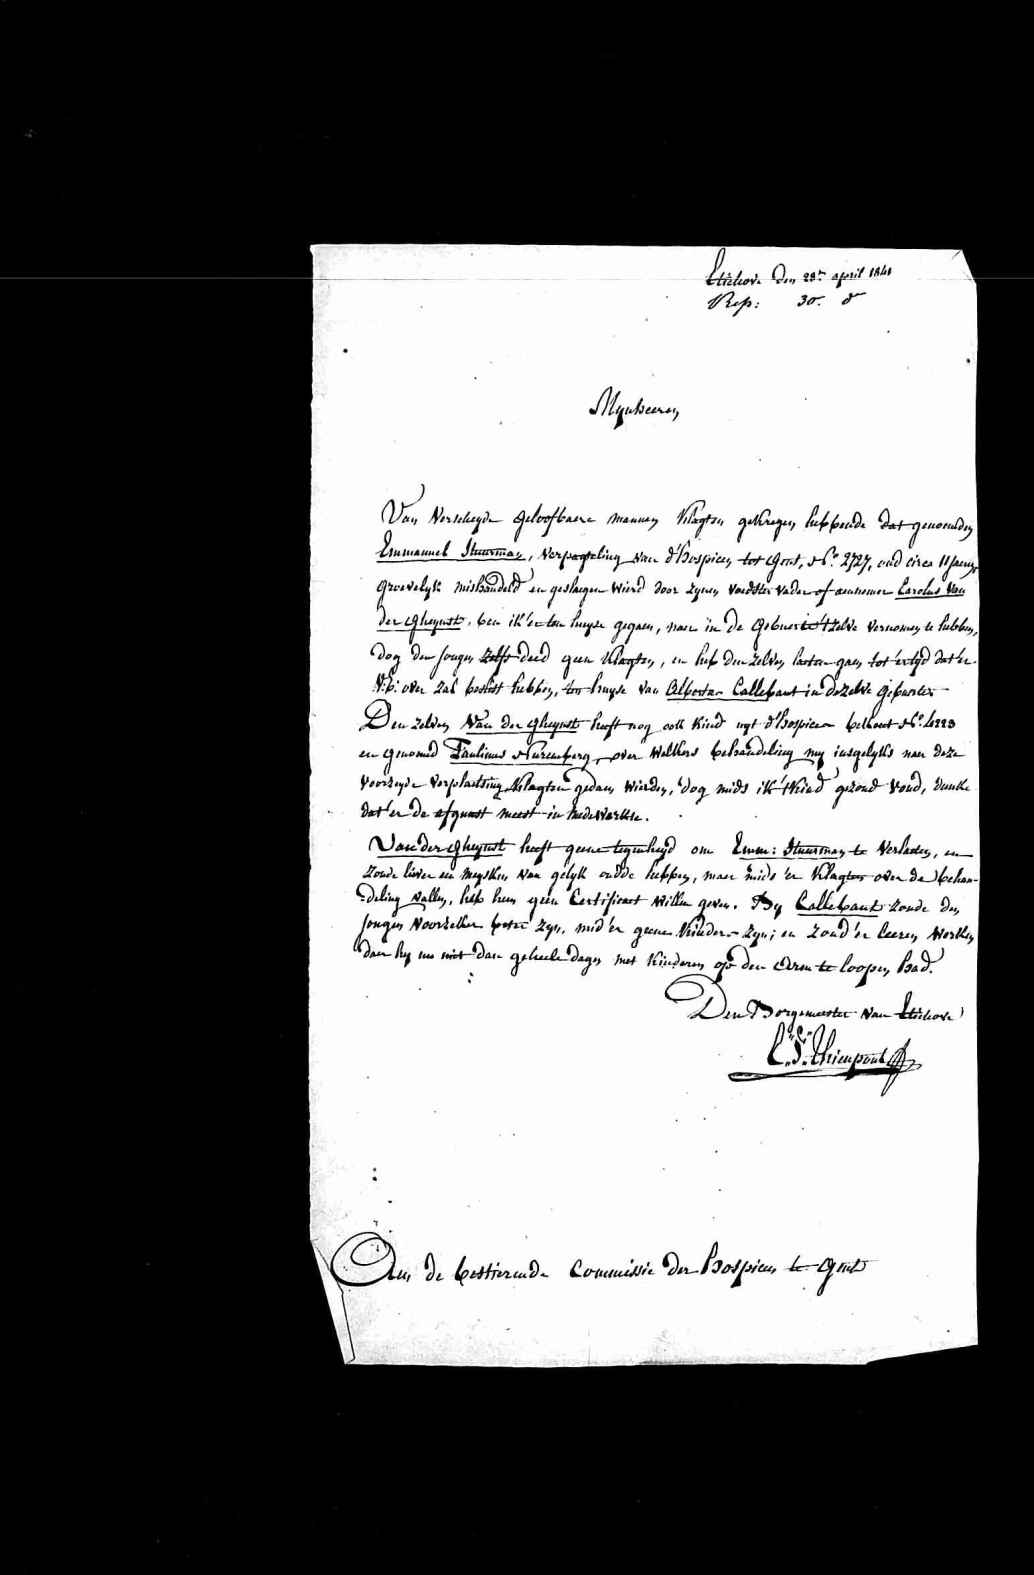 Etichove den 28n april 1841
Rep: 30. d°
Mynheeren
Van Verscheyde geloofbaere mannen klagten gekregen hebbende dat genoemden
Emmanuel Stuurman, Verpageling van d'hospicen tot Gent, N° 2727, oud circa 11 jaeren
groevelyk mishandeld en geslaegen wierd door zynen voedster vader of aennemer Carolus Van
der Gheynst, ben ik 'er ten huyse gegaen, naer in de gebuerte 't zelve vernomen te hebben,
dog den jongen zelfs deed geen klagten, en heb den zelven laeten gaen, tot 'er tyd dat 'er
over zal beslist hebben, ten huyse van Callebaut in dezelve gebuerte
Den zelven Van der Gheynst heeft nog ook kind uyt d'hospicen N° 4223
en genoemd Paulinus Nurenberg, over welkers behandeling my insgelyks naer deze
voorzeyde verplaetsing klagten gedaen wierden, dog mids ik 't kind gezond vond, dunke
dat 'er de afgunst meest in medewerkte.
Van der Gheynst heeft geene tegenheyd om Emm: Stuurman te verlaeten, en
zoude liever een meysken van gelyk oudde hebben, maer mids 'er klagten over de behan-
deling vallen, heb hem geen Certificaet willen geven. By Callebaut zoude den
jongen voorzeker beter zyn, mid 'er geene kinderen zyn; en zoud 'er leeren werken
daer hy nu niet dan geheele dagen met kinderen op den arm te loopen had.
Den Borgemeester van Etichove
Thienpont
Aen de bestierende Commissie der Hospicen te Gent